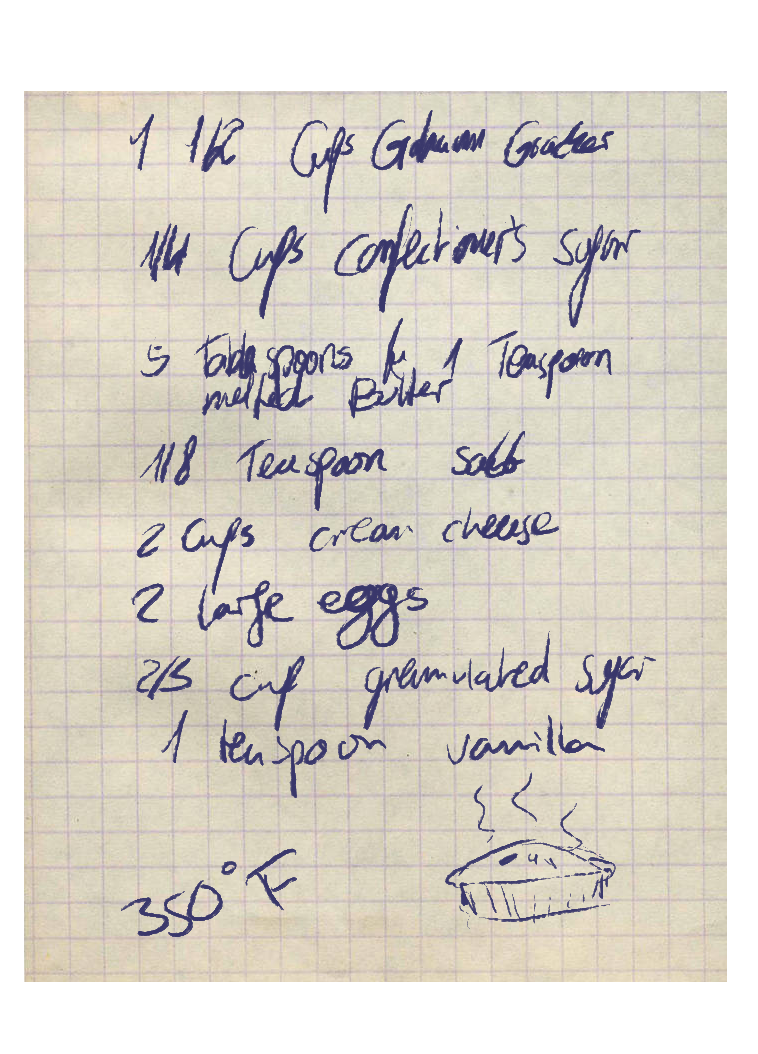 1 1/2 Cups Graham Cracker
1/4 Cups confectioner's sugar
5 Tablespoons & 1 Teaspoon
melted Butter
1/8 Teaspoon salt
2 Cups cream cheese
2 large eggs
2/3 cup granulated sugar
1 teaspoon vanilla
350° F